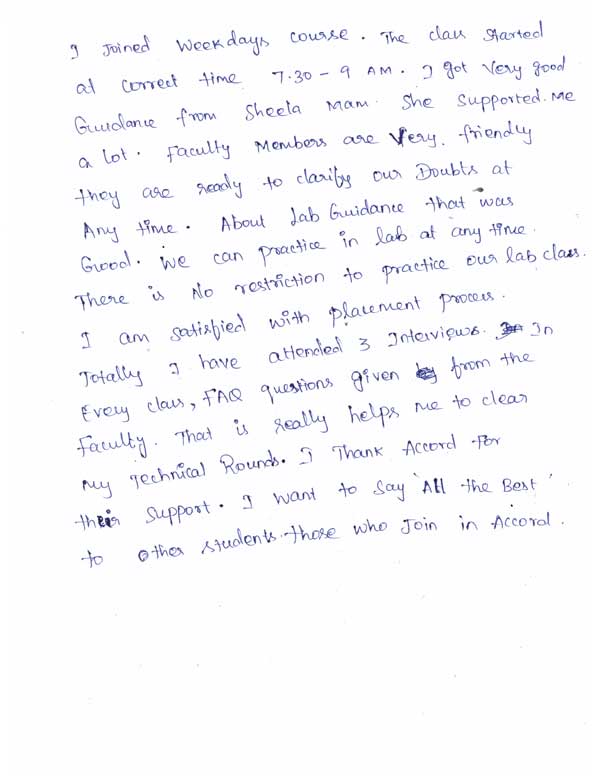 I Joined Weekdays course. The class started
at correct time 7.30 - 9 AM. I got Very good
Guidance from Sheela Mam. She Supported Me
a lot. Faculty Members are Very friendly
they are ready to clarify our Doubts at
Any time. About Lab Guidance that was
Good. We can practice in lab at any time.
There is No restriction to practice our lab class.
I am satisfied with placement process.
Totally I have attended 3 Interviews. In
Every class, FAQ questions given from the
Faculty. That is really helps me to clear
My Technical Rounds. I Thank Accord for
their Support. I want to Say 'All the Best'
to other students those who Join in Accord.